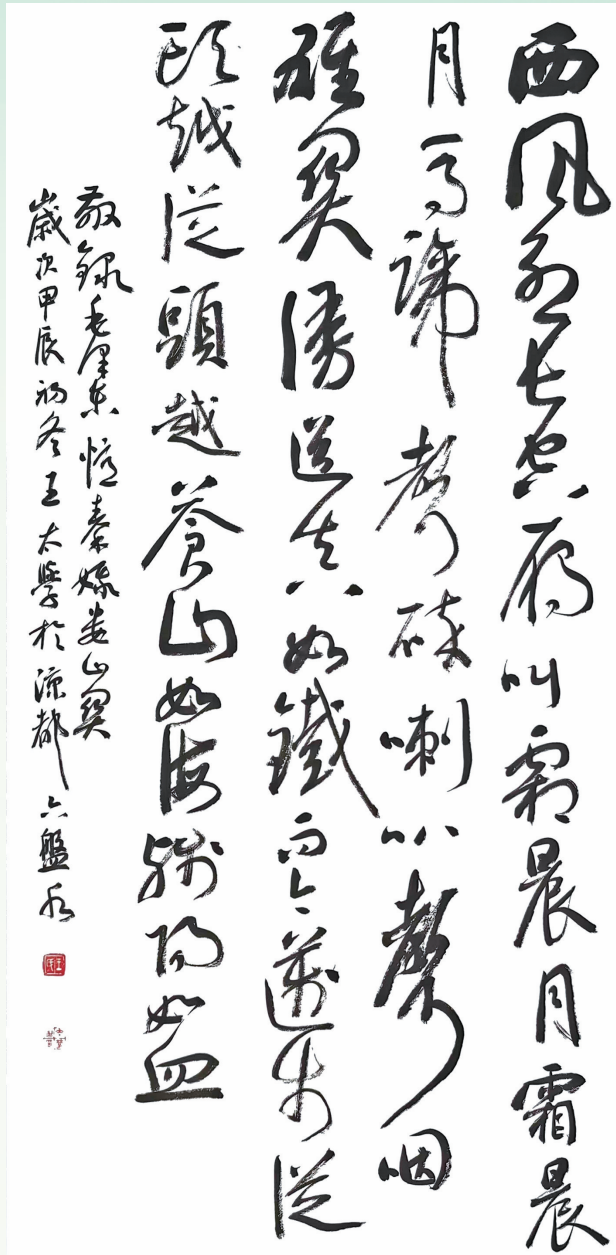 西風烈長空雁叫霜晨月霜晨
月馬蹄聲碎喇叭聲咽
雄關漫道真如鐵而今邁步從
頭越從頭越蒼山如海殘陽如血
敬録毛澤東憶秦娥婁山關
歲次甲辰初冬王太學於涼都六盤水